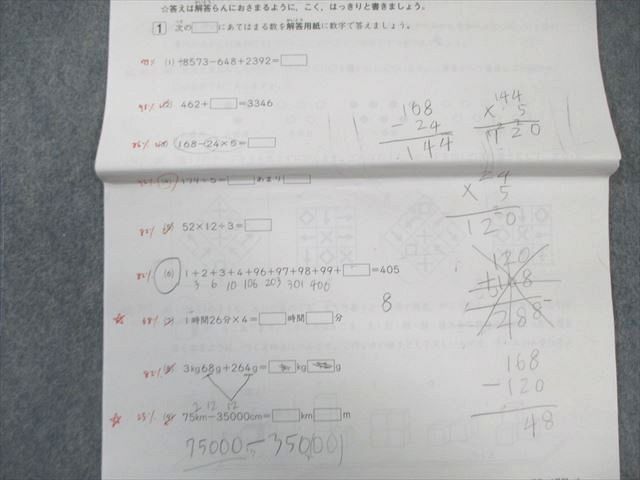 ☆答えは解答らんにおさまるように、こく、はっきりと書きましょう。
1 次の にあてはまる数を解答用紙に数字で答えましょう。
(1) 8573-648+2392=
462+ =3346
168-24×5=
あまり
52×12÷3=
82% (6) 1+2+3+4+96+97+98+99+ =405
3 6 10 106 203 301 400
8
68% 1時間26分×4= 時間 分
82% 3kg68g+264g= kg g
2 12 12
75km-35000cm= km m
75000-35000
168
-24
144
144
× 5
720
24
× 5
120
120
168
288
168
-120
48